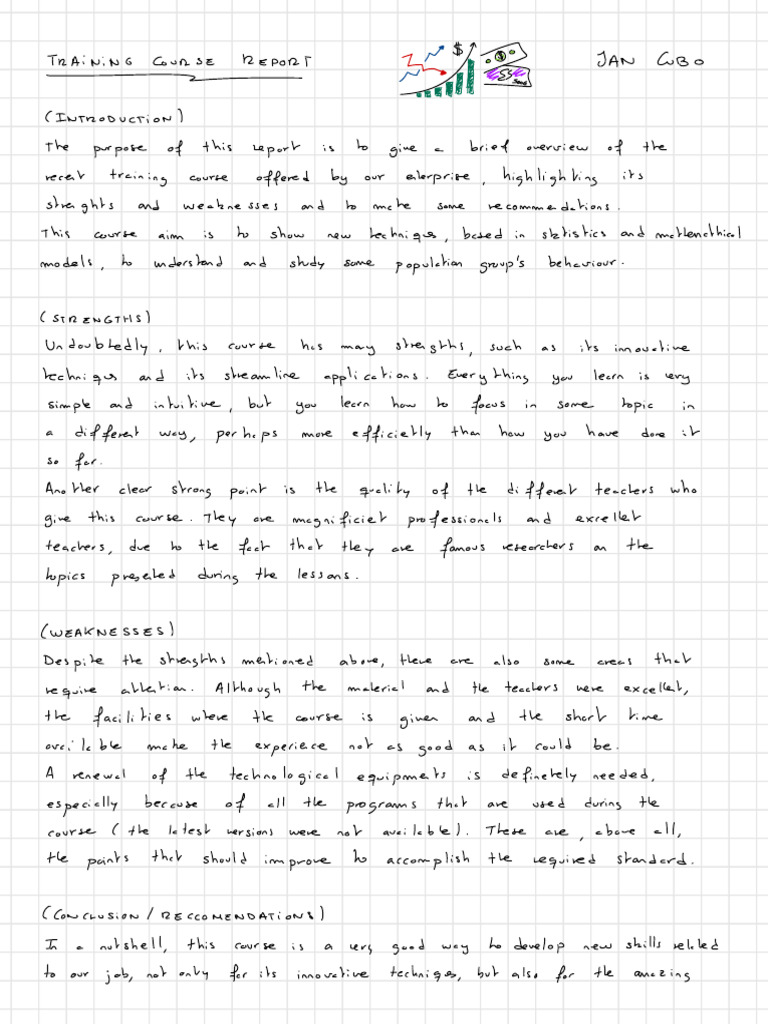 TRAINING COURSE REPORT
$
JAN CUBO
(INTRODUCTION)
The purpose of this report is to give a brief overview of the
recent training course offered by our enterprise, highlighting its
strenghts and weaknesses and to make some recommendations.
This course aim is to show new techniques, based in statistics and mathematical
models, to understand and study some population group's behaviour.
(STRENGTHS)
Undoubtedly, this course has many strengths, such as its innovative
techniques and its streamline applications. Everything you learn is very
simple and intuitive, but you learn how to focus in some topic in
a different way, perhaps more efficiently than how you have done it
so far.
Another clear strong point is the quality of the different teachers who
give this course. They are magnificient professionals and excellent
teachers, due to the fact that they are famous researchers on the
topics presented during the lessons.
(WEAKNESSES)
Despite the strengths mentioned above, there are also some areas that
require attention. Although the material and the teachers were excellent,
the facilities where the course is given and the short time
available make the experience not as good as it could be.
A renewal of the technological equipments is definetely needed,
especially because of all the programs that are used during the
course (the latest versions were not available). These are, above all,
the points that should improve to accomplish the required standard.
(CONCLUSION / RECCOMENDATIONS)
In a nutshell, this course is a very good way to develop new skills related
to our job, not only for its innovative techniques, but also for the amazing